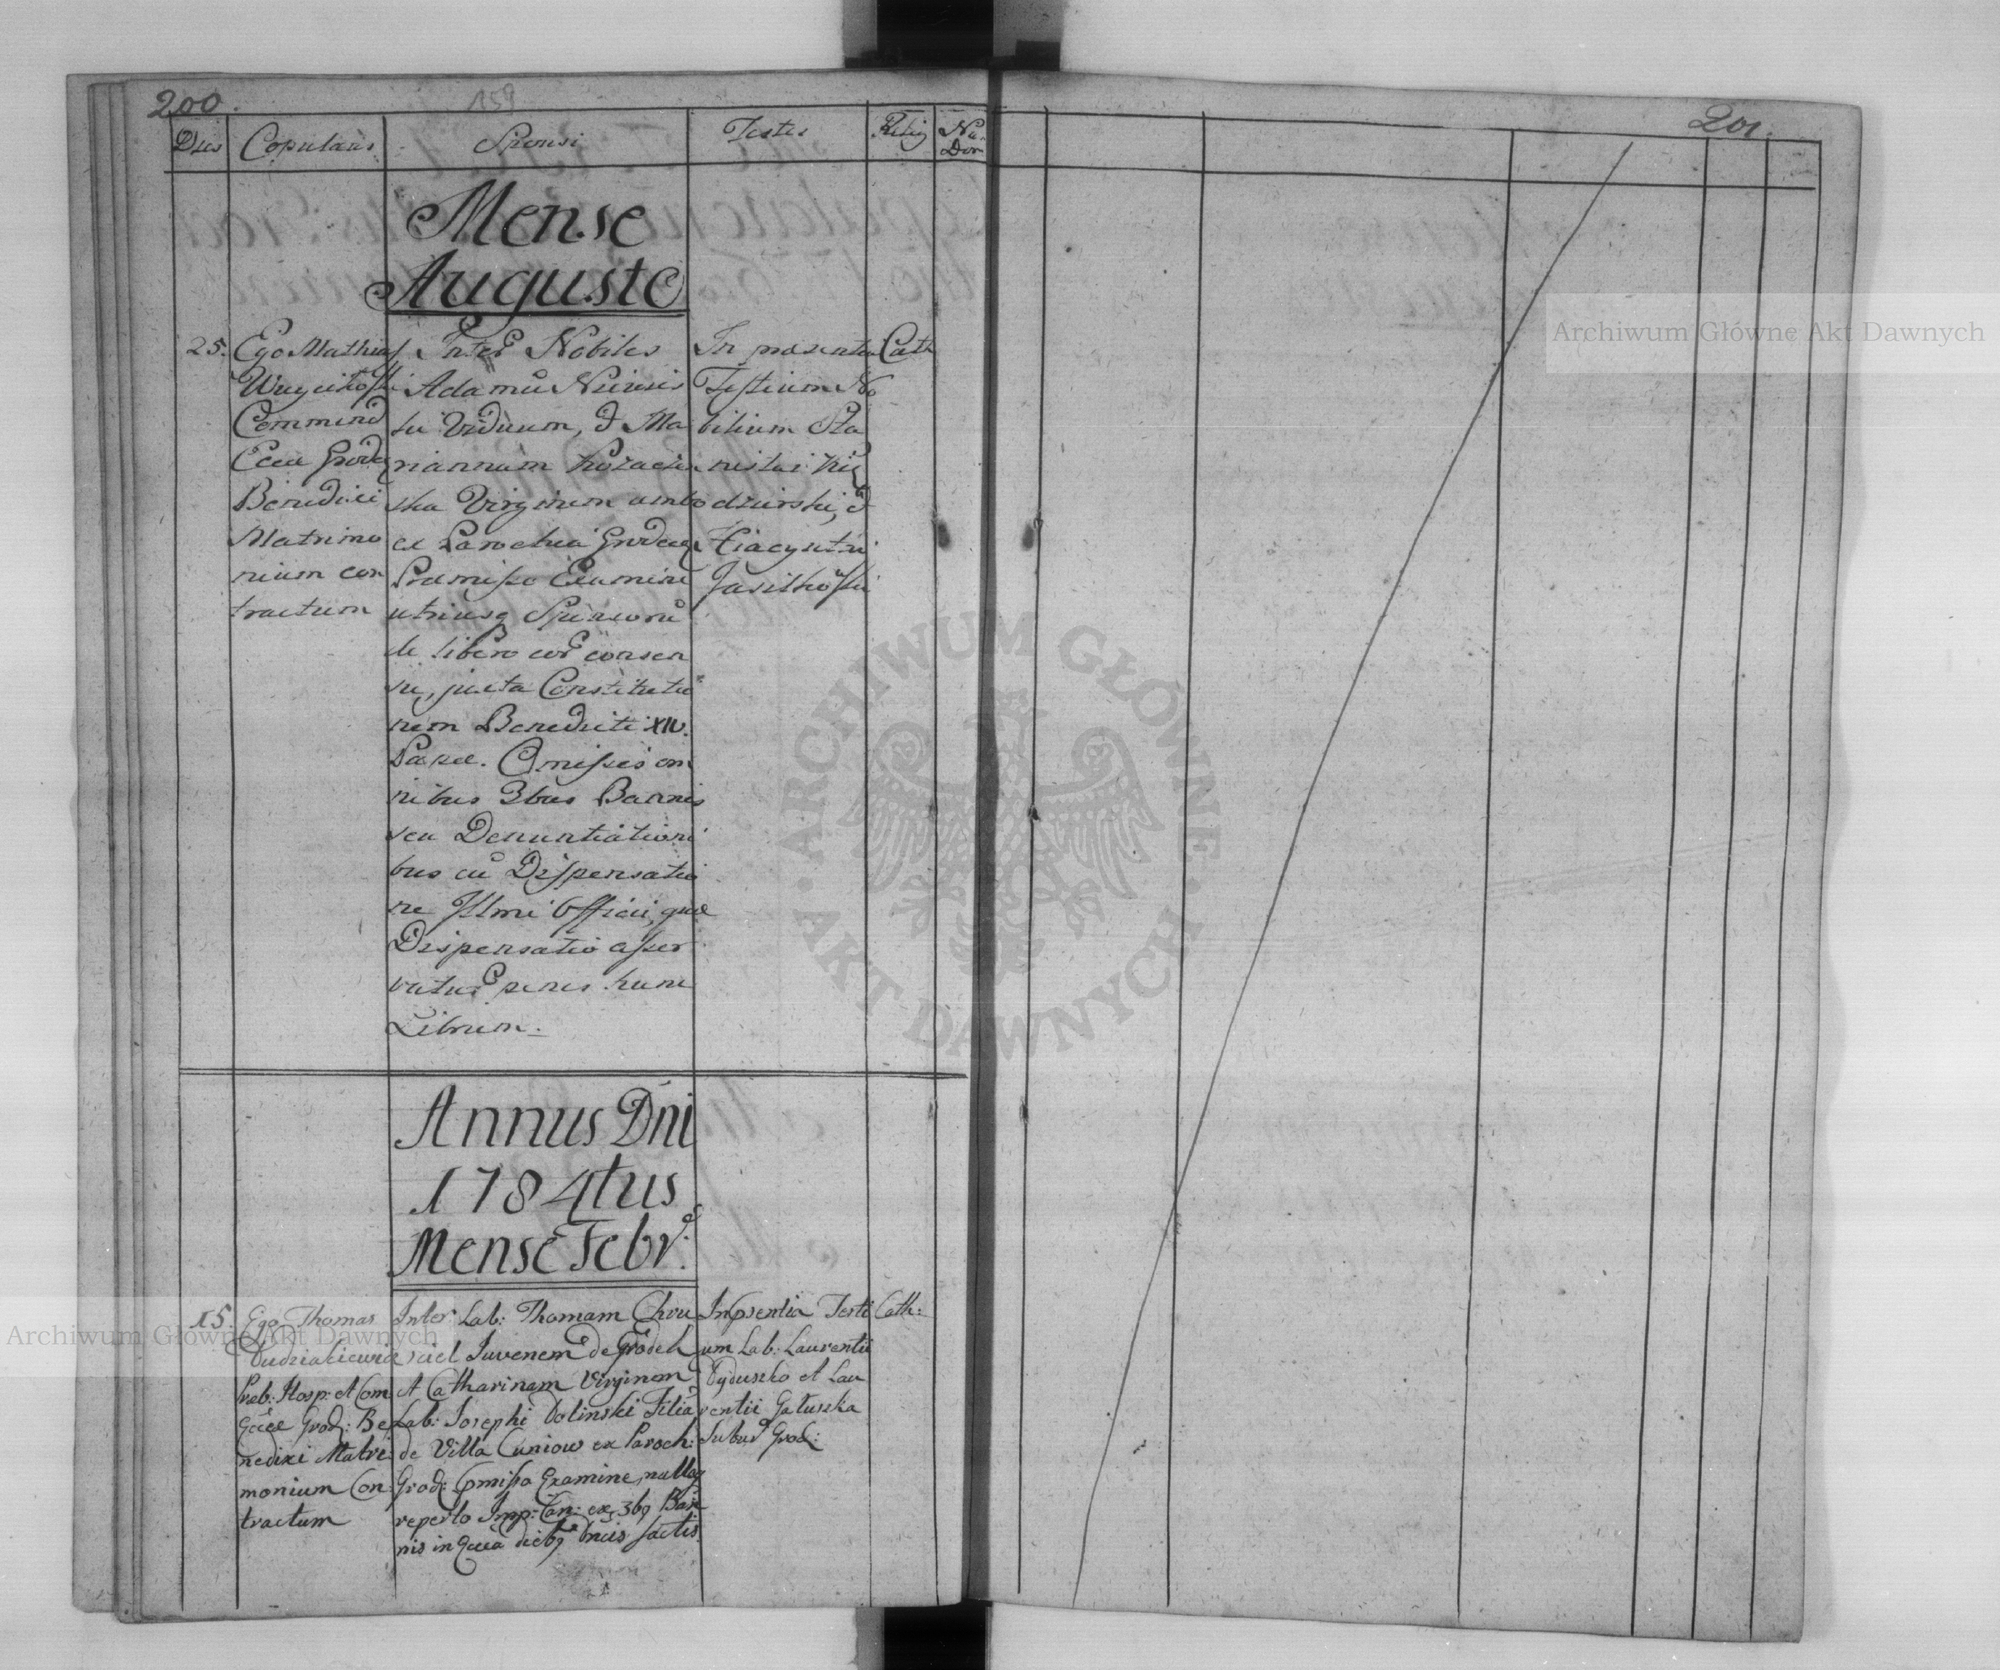 200.
159
201.
Dies
Copulans
Sponsi
Testes
Relig
Nu
Dom
Mense
Augusto
25.
Ego Mathias
Commend
Eccl Grodec
Benedixi
Matrimo
nium con
tractum
Inter Nobiles
Adamu
ki Viduum, & Ma
riannam
ska Virginem ambo
ex Parochia Grodec
Præmisso Examine
utriusq Sponsoru
de libero eor consen
su, juxta Constitutio
nem Benedicti XIV.
Papæ. Omissis om
nibus 3bus Bannis
seu Denuntiationi
bus cu Dispensatio
ne Illmi Officii, quæ
Dispensatio asser
vatur penes hunc
Librum.
In præsentia
Testium No
bilium Sta
nislai Kię
dzierski, &
Hiacynthi
Cath
Annus Dni
1784tus
Mense Febr.
15.
Ego Thomas
Dudziakiewicz
Præb: Hosp: et Com
Eccæ Grod: Be
nedixi Matri
monium Con
tractum
Inter Lab: Thomam Chru
sciel Juvenem de Grodek
Et Catharinam Virginem
Lab: Josephi Dolinski Filia
de Villa Cuniow ex Paroch:
Grod: Præmisso Examine, nulloq
reperto Imp: Can: ex 3bq Ban
nis in Eccæa diebq Dnicis factis.
In Præsentia Testi
um Lab: Laurentii
Dyduszko et Lau
rentii Gatuszka
Subur Grod:
Cath:
Archiwum Główne Akt Dawnych
Archiwum Główne Akt Dawnych
ARCHIWUM GŁÓWNE
AKT DAWNYCH